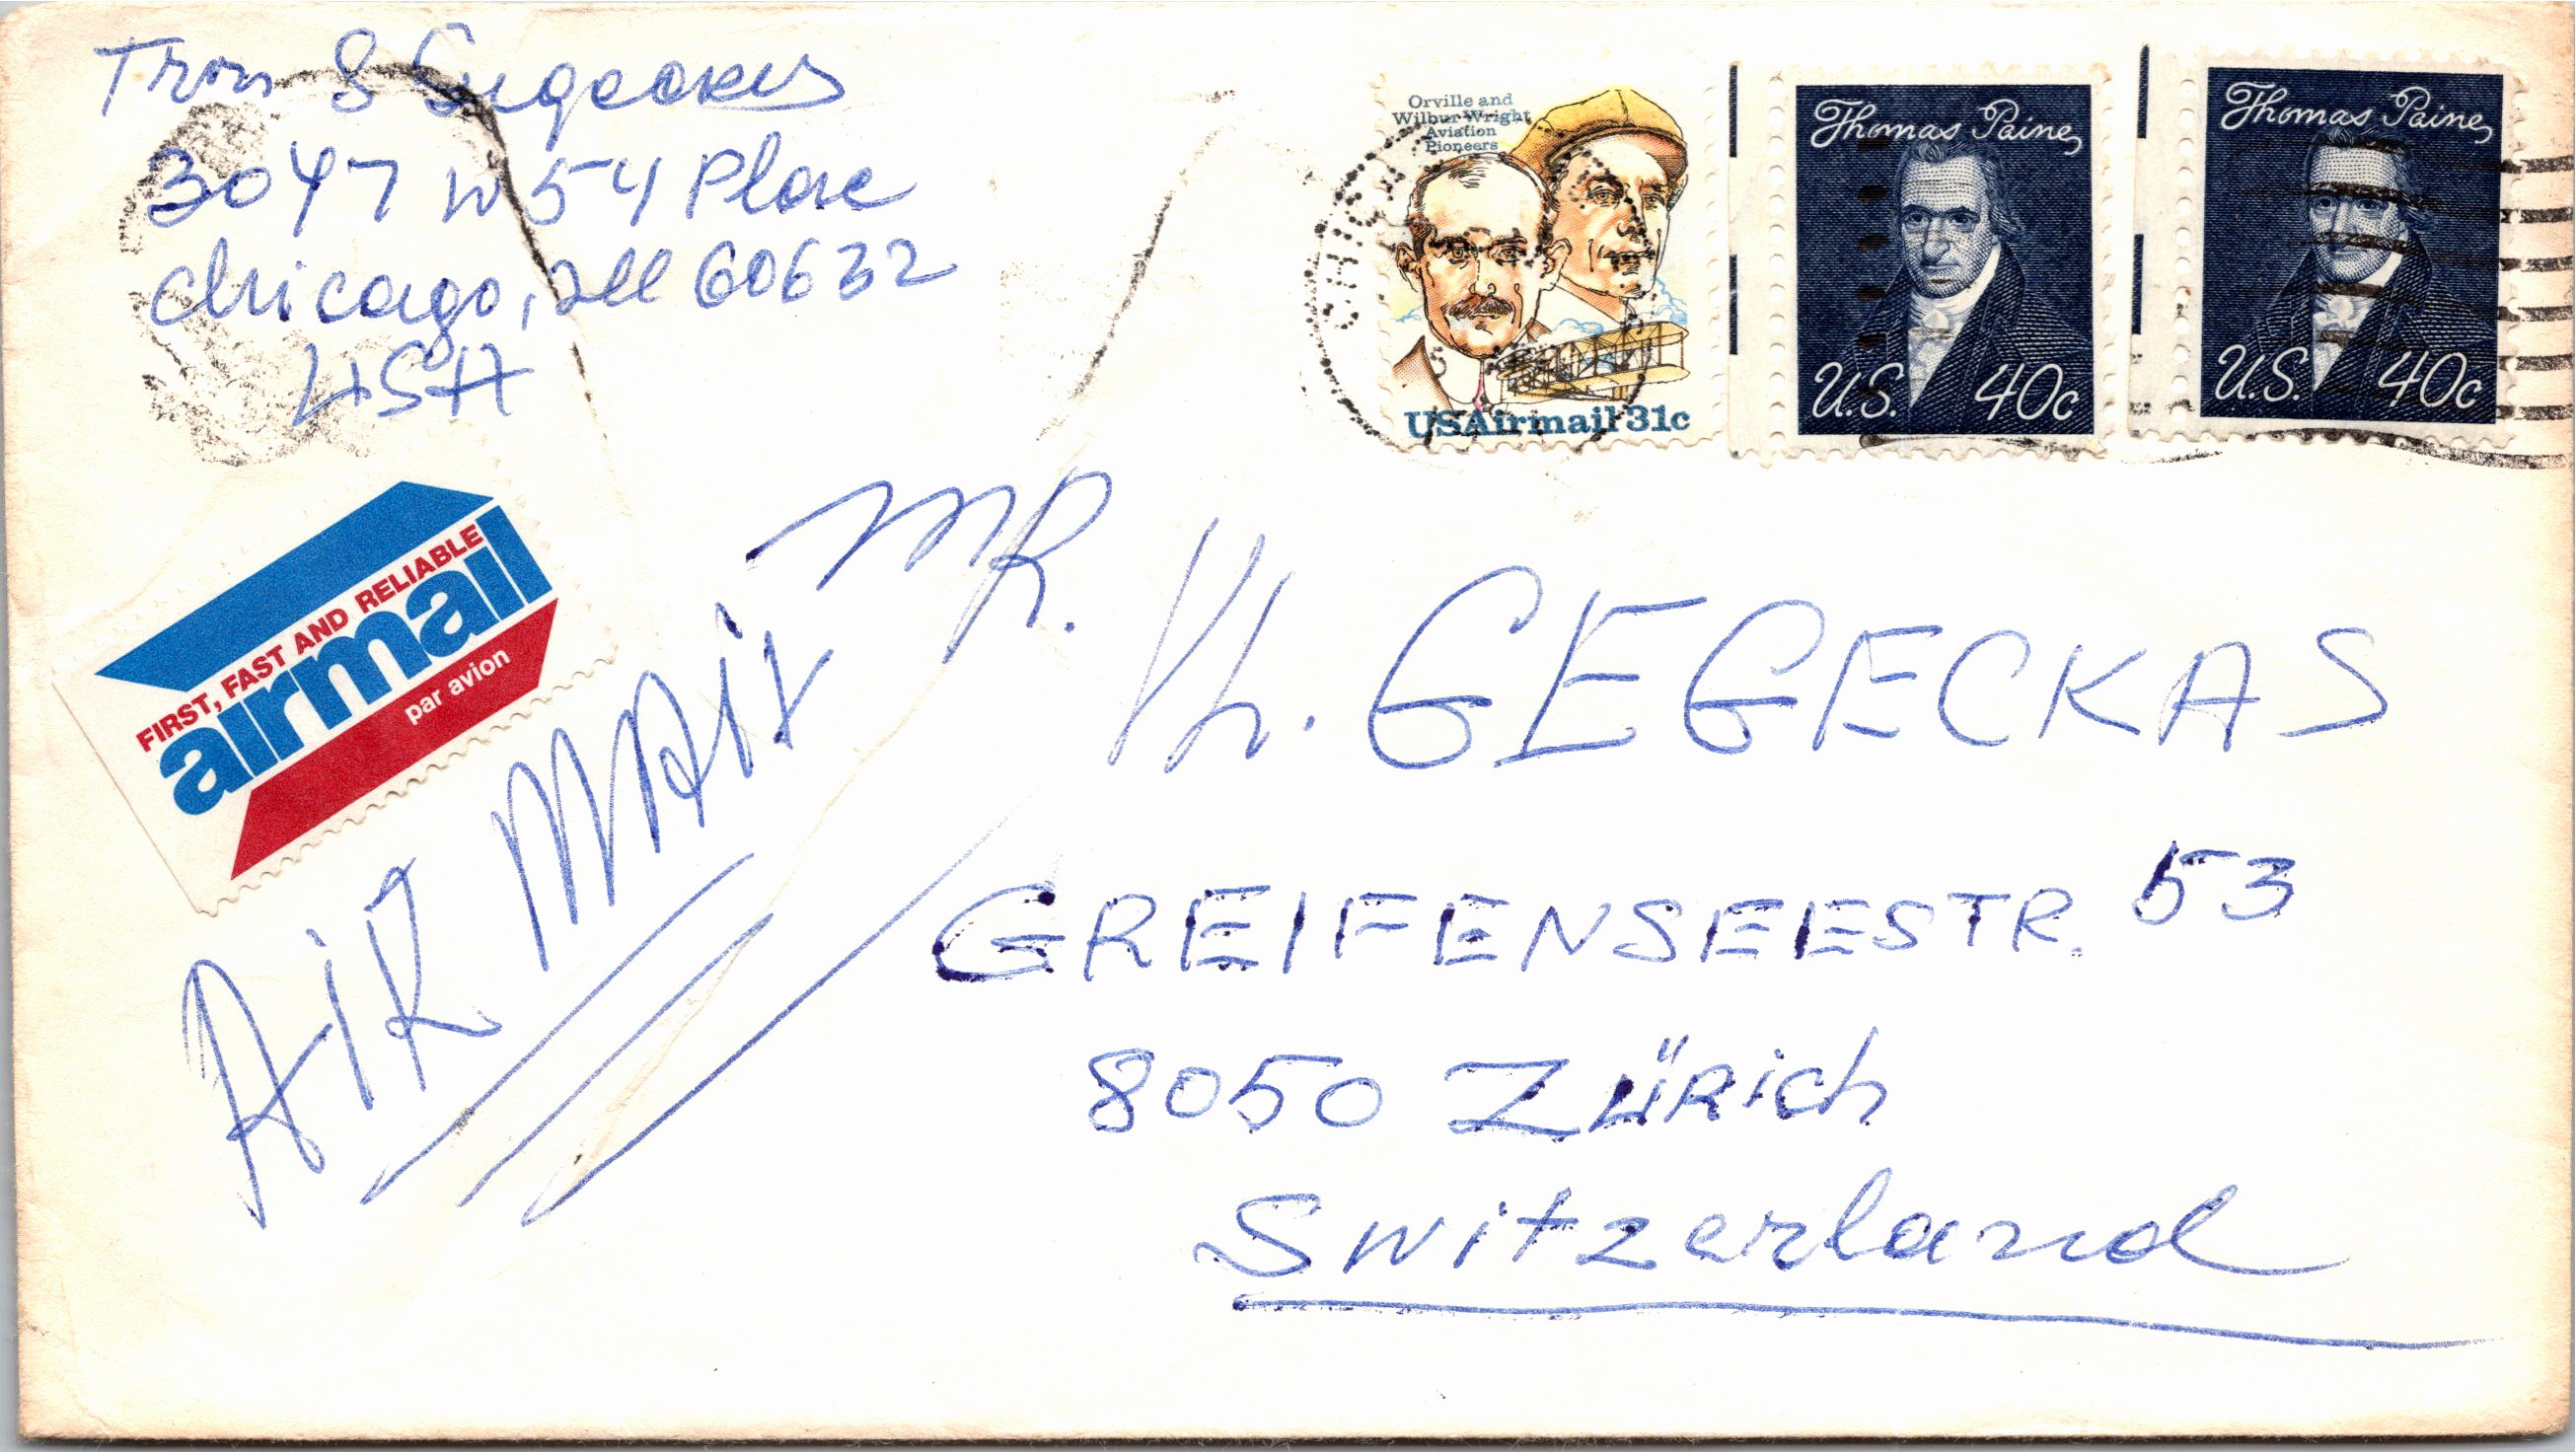 3047 W 54 Place
Chicago, Ill 60632
USA
Orville and
Wilbur Wright
Aviation
Pioneers
USAirmail 31c
Thomas Paine
U.S. 40c
Thomas Paine
U.S. 40c
FIRST, FAST AND RELIABLE
airmail
par avion
AIR MAIL
MR. Vl. GEGECKAS
GREIFENSEESTR. 53
8050 ZÜRich
Switzerland